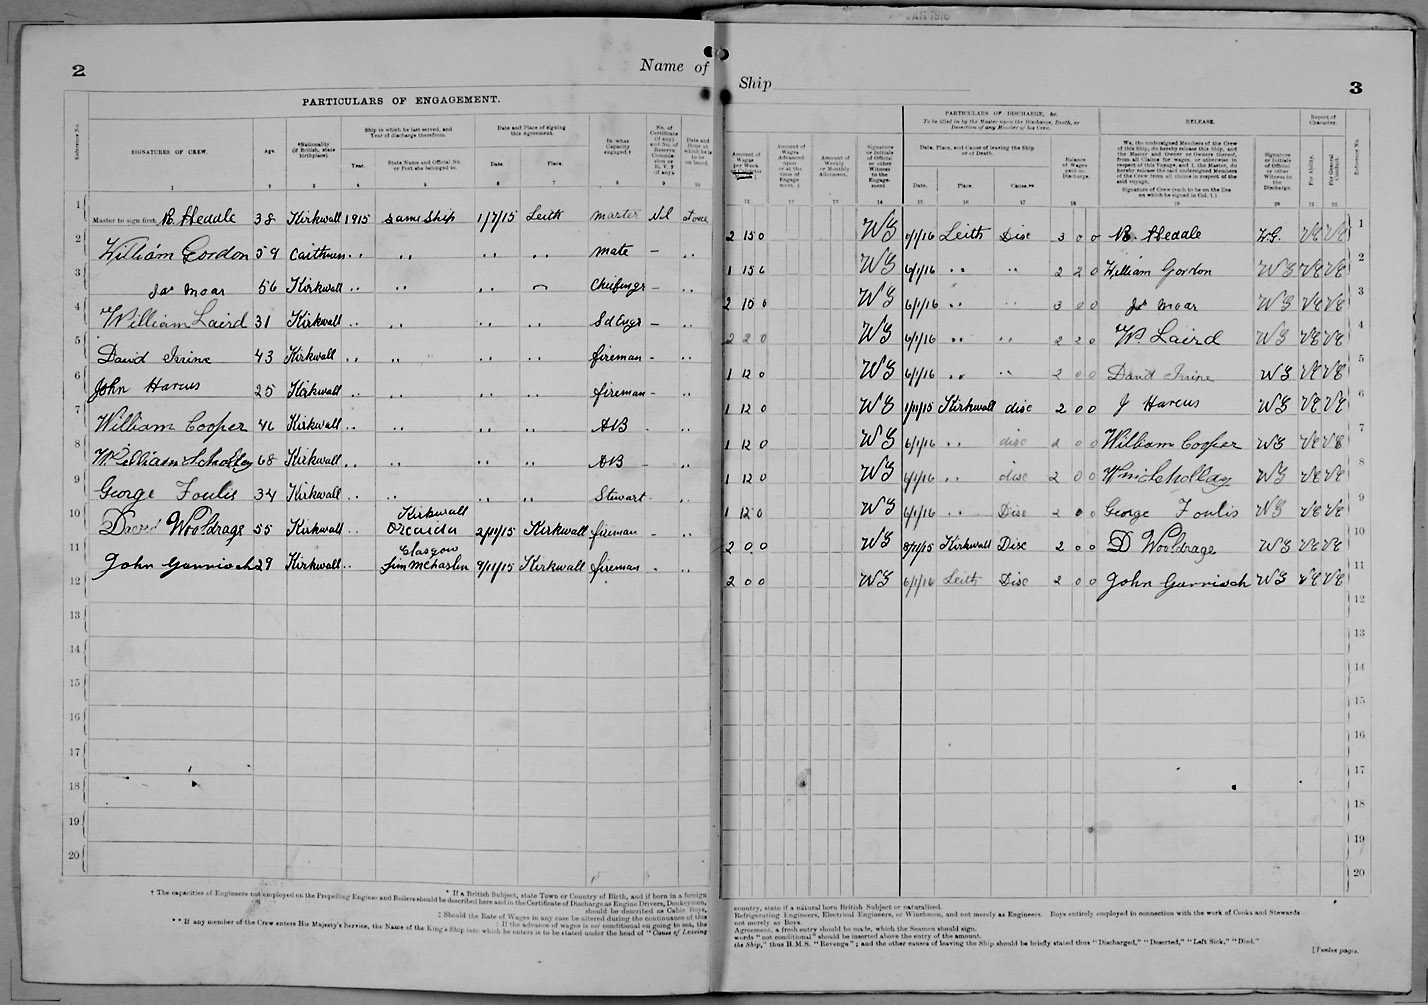 2
Name of
Ship
3
PARTICULARS OF ENGAGEMENT.
PARTICULARS OF DISCHARGE, &c.
To be filled in by the Master upon the Discharge, Death, or Desertion of any Member of his Crew.
RELEASE.
Report of Character.
Reference No.
SIGNATURES OF CREW.
Age.
*Nationality (if British, state birthplace).
Ship in which he last served, and Year of discharge therefrom.
Year.
State Name and Official No. or Port she belonged to.
Date and Place of signing this Agreement.
Date.
Place.
In what Capacity engaged.†
Date and Hour at which he is to be on board.
Amount of Wages per Week
Amount of Wages Advanced upon or at the time of Engagement.
Amount of Weekly or Monthly Allotment.
Signature or Initials of Official or other Witness to the Engagement
Date, Place, and Cause of leaving the Ship or of Death.
Date.
Place.
Cause.**
Balance of Wages paid on Discharge.
We, the undersigned Members of the Crew of this Ship, do hereby release this Ship, and the Master and Owner or Owners thereof, from all Claims for wages, or otherwise in respect of this Voyage, and I, the Master, do hereby release the said undersigned Members of the Crew from all claims in respect of the said voyage.
Signature of Crew (each to be on the line on which he signed in Col. 1.)
Signature or Initials of Official or other Witness to the Discharge.
For Ability.
For General Conduct.
Reference No.
1 2 3 4 5 6 7 8 9 10 11 12 13 14 15 16 17 18 19 20 21 22
1 Master to sign first. R Headle 38 Kirkwall 1915 Same Ship 1/7/15 Leith Master Nil at once 2 15 0 WG 6/1/16 Leith Disc 3 0 0 R Headle W.G. VG VG 1
2 William Gordon 59 Caithness " " " " Mate - " 1 15 6 WG 6/1/16 " " 2 2 0 William Gordon WG VG VG 2
3 Jas Moar 56 Kirkwall " " " " Chief Engr - " 2 10 0 WG 6/1/16 " " 3 0 0 Jas Moar WG VG VG 3
4 William Laird 31 Kirkwall " " " " 2d Engr - " 2 2 0 WG 6/1/16 " " 2 2 0 W. Laird WG VG VG 4
5 David Irvine 43 Kirkwall " " " " fireman - " 1 12 0 WG 6/1/16 " " 2 0 0 David Irvine WG VG VG 5
6 John Harcus 25 Kirkwall " " " " fireman - " 1 12 0 WG 1/11/15 Kirkwall disc 2 0 0 J Harcus WG VG VG 6
7 William Cooper 46 Kirkwall " " " " AB - " 1 12 0 WG 6/1/16 " disc 2 0 0 William Cooper WG VG VG 7
8 William Scholley 68 Kirkwall " " " " AB - " 1 12 0 WG 6/1/16 " disc 2 0 0 Wm Schollay WG VG VG 8
9 George Foulis 34 Kirkwall " " " " Stewart - " 1 12 0 WG 6/1/16 " Disc 2 0 0 George Foulis WG VG VG 9
10 David Wooldrage 55 Kirkwall " Kirkwall Orcadia 2/11/15 Kirkwall fireman - " 2 0 0 WG 8/11/15 Kirkwall Disc 2 0 0 D Wooldrage WG VG VG 10
11 John Garrioch 29 Kirkwall " Glasgow 9/11/15 Kirkwall fireman - " 2 0 0 WG 6/1/16 Leith Disc 2 0 0 John Garrioch WG VG VG 11
12 12
13 13
14 14
15 15
16 16
17 17
18 18
19 19
20 20
* If a British Subject, state Town or Country of Birth, and if born in a foreign country, state if a natural born British Subject or naturalized.
† The capacities of Engineers not employed on the Propelling Engines and Boilers should be described here and in the Certificate of Discharge as Engine Drivers, Donkeymen, Refrigerating Engineers, Electrical Engineers, or Winchmen, and not merely as Engineers. Boys entirely employed in connection with the work of Cooks and Stewards should be described as Cabin Boys, not merely as Boys.
‡ Should the Rate of Wages in any case be altered during the continuance of this Agreement, a fresh entry should be made, which the Seamen should sign.
If the advance of wages is not conditional on going to sea, the words "not conditional" should be inserted above the entry of the amount.
** If any member of the Crew enters His Majesty's Service, the Name of the King's Ship into which he enters is to be stated under the head of "Cause of Leaving the Ship," thus H.M.S. "Revenge"; and the other causes of leaving the Ship should be briefly stated thus "Discharged," "Deserted," "Left Sick," "Died."
[Twelve pages.